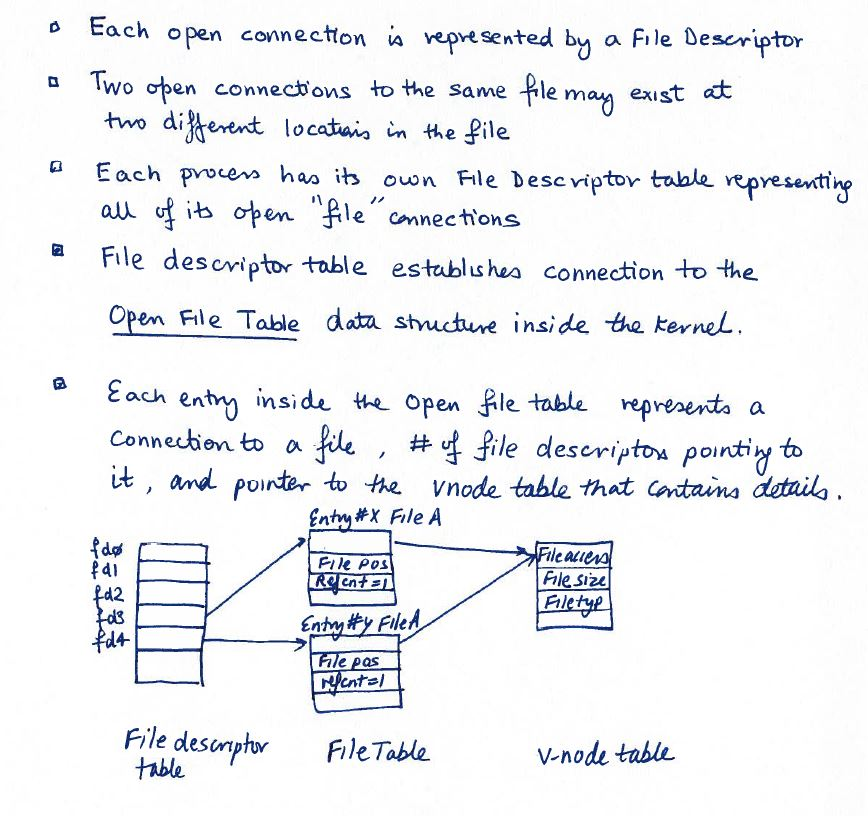 Each open connection is represented by a File Descriptor
Two open connections to the same file may exist at
two different locations in the file
Each process has its own File Descriptor table representing
all of its open "file" connections
File descriptor table establishes connection to the
Open File Table data structure inside the kernel.
Each entry inside the Open file table represents a
Connection to a file, # of file descriptors pointing to
it, and pointer to the vnode table that contains details.
Entry #X File A
fd0
fd1
fd2
fd3
fd4
File pos
Refcnt=1
Entry #y File A
File pos
refcnt=1
File access
File size
File typ
File descriptor
table
File Table
V-node table